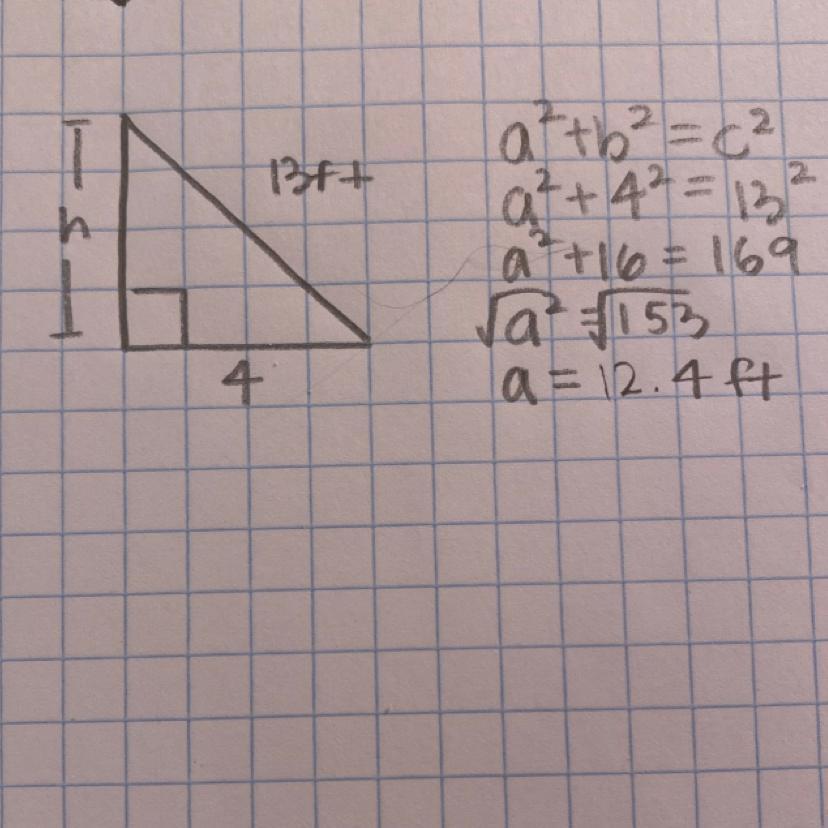 h
13ft
4
a² + b² = c²
a² + 4² = 13²
a² + 16 = 169
√a² = √153
a = 12.4 ft